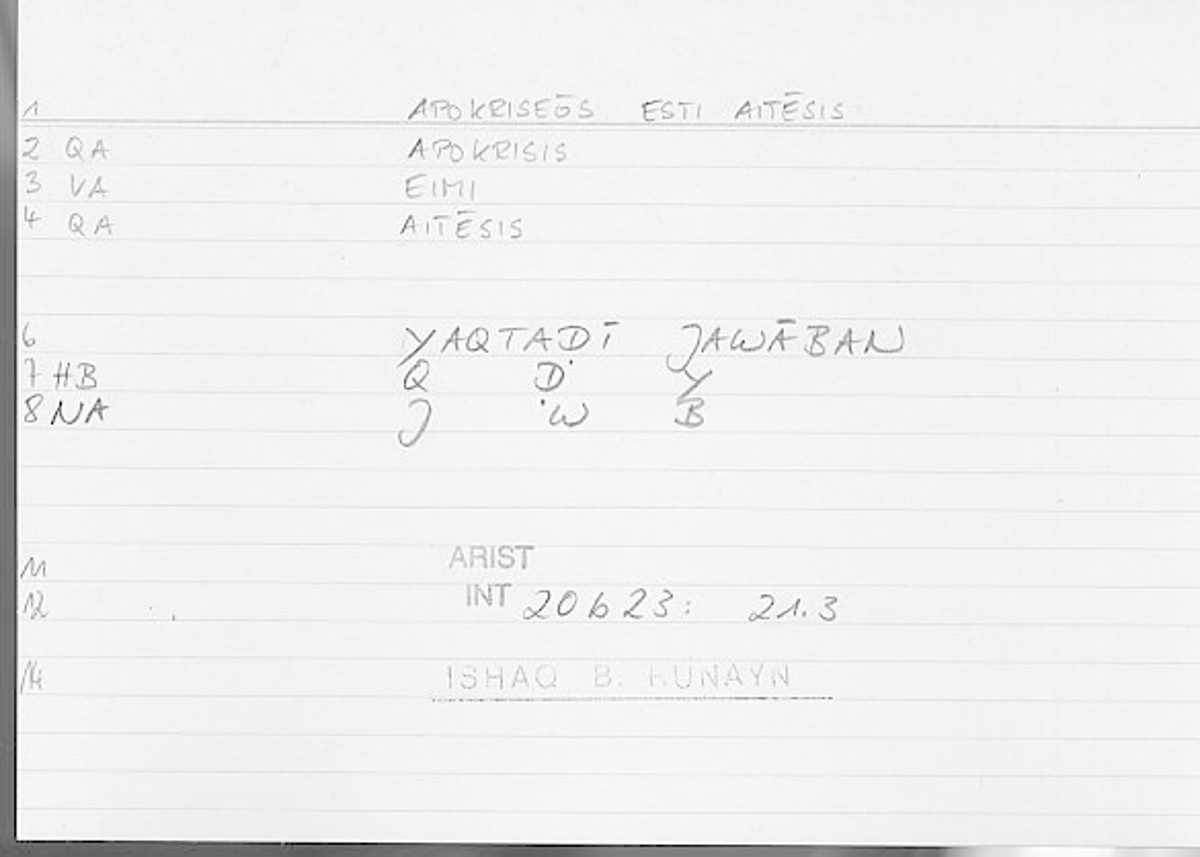 1 APOKRISEŌS ESTI AITĒSIS
2 QA APOKRISIS
3 VA EIMI
4 QA AITĒSIS
6 YAQTAḌĪ JAWĀBAN
7 HB Q Ḍ Y
8 NA J W B
11 ARIST
12 INT 20 b 23: 21.3
14 ISHAQ B. HUNAYN